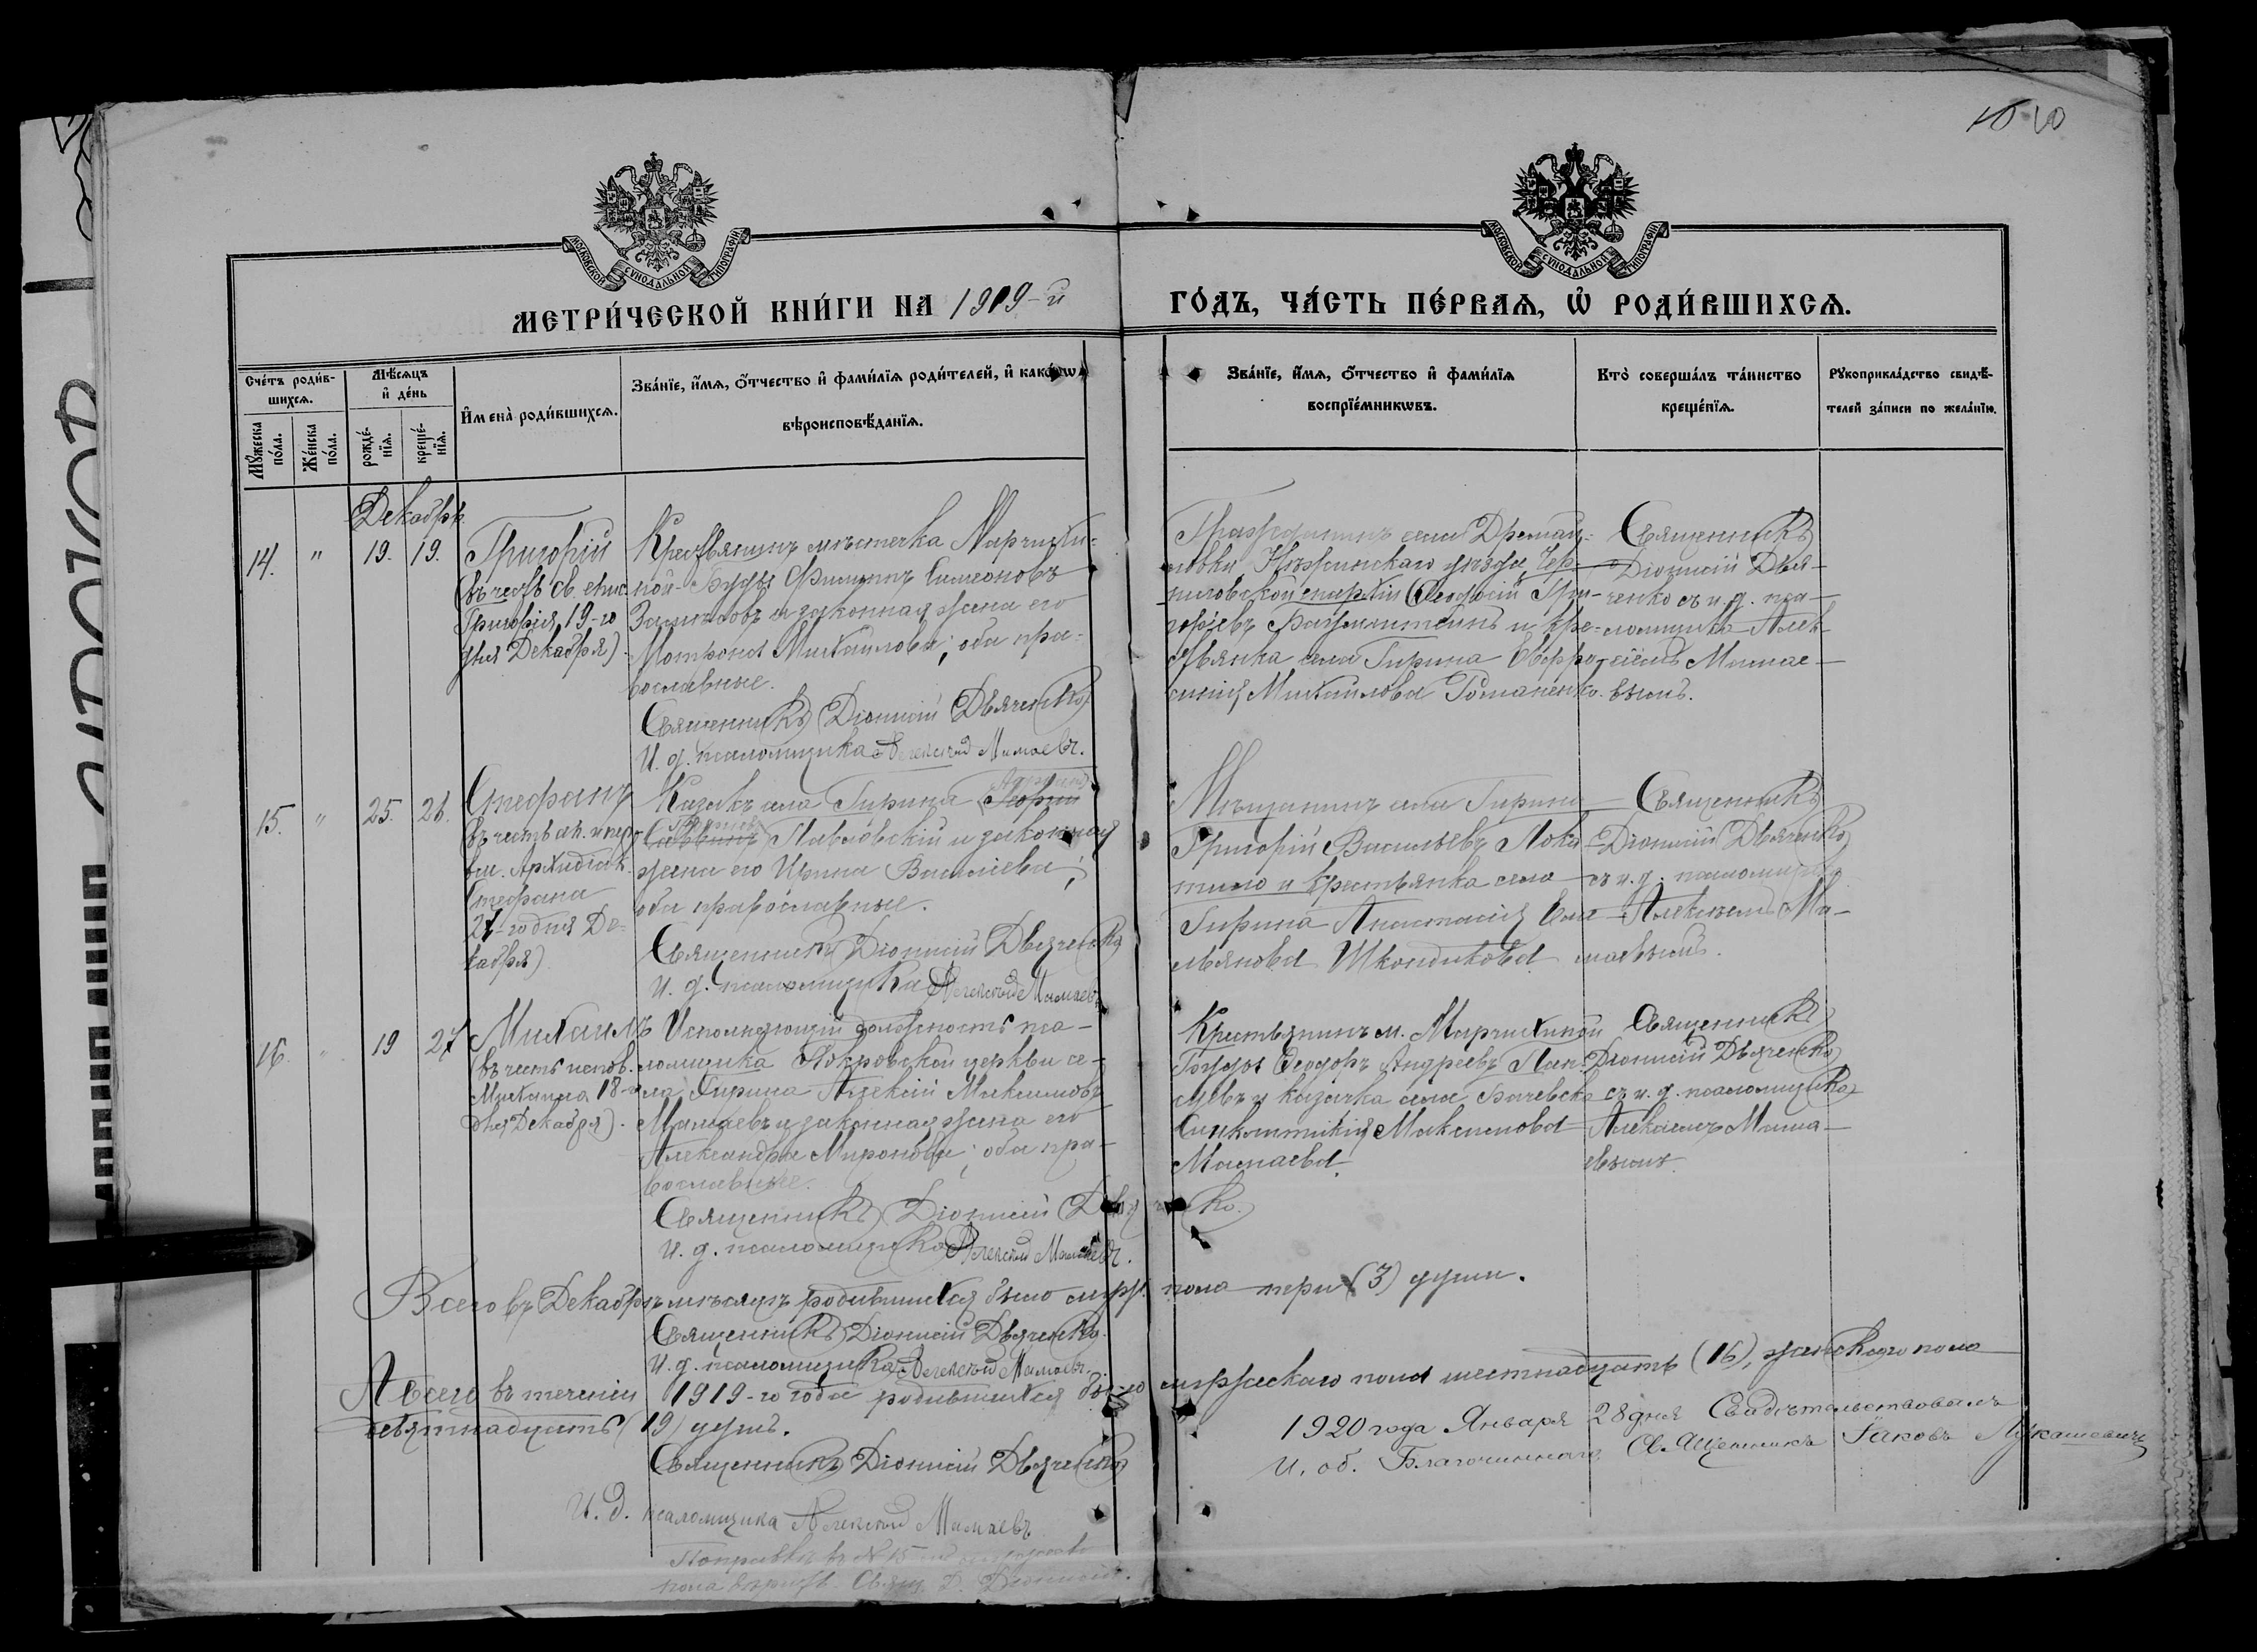 10
МОСКОВСКОЙ СѴНОДАЛЬНОЙ ТИПОГРАФІИ
МОСКОВСКОЙ СѴНОДАЛЬНОЙ ТИПОГРАФІИ
МЕТРИ́ЧЕСКОЙ КНИ́ГИ НА 1919-й
ГО́ДЪ, ЧА́СТЬ ПЕ́РВАѦ, Ѽ РОДИ́ВШИХСѦ.
Сче́тъ роди́в-
шихсѧ.
Мꙋ́жеска по́ла.
Же́нска по́ла.
Мѣ́сѧцъ
и҆ де́нь
рожде́-
нїѧ.
креще́-
нїѧ.
И҆мена̀ роди́вшихсѧ.
Зва́нїе, и҆́мѧ, ѻ҆́тчество и҆ фами́лїѧ роди́телей, и҆ како́гѡ
вѣроисповѣ́данїѧ.
Зва́нїе, и҆́мѧ, ѻ҆́тчество и҆ фами́лїѧ
воспрїе́мникѡвъ.
Кто̀ соверша́лъ та́инство
креще́нїѧ.
Рꙋкоприкла́дство свидѣ́-
телей за́писи по жела́нїю.
Декабрь
14.
"
19.
19.
Григорій
(въ честь св. епис.
Григорія 19-го
дня Декабря).
Крестьянинъ мѣстечка Марчихи-
ной-Буды Филиппъ Симеоновъ
и законная жена его
Матрона Михайлова; оба пра-
вославные.
Священникъ Діонисій Дьяченко
И. д. псаломщика Алексѣй Мамаевъ.
Гражданинъ села Дремай-
ловки Нѣжинскаго уѣзда Чер-
ниговской епархіи Феодосій Гри-
горіевъ и кре-
стьянка села Гирина Евфро-
синія Михайлова Романенко.
Священникъ
Діонисій Дья-
ченко съ и. д. пса-
ломщика Алек-
сѣемъ Мамае-
вымъ.
15.
"
25.
26.
Стефанъ
въ честь ап. перво
вм. Архидіак.
Стефана
27-го дня Де-
кабря).
Казакъ села Гирина
Павловскій и законная
жена его Ирина Василіева;
оба православные.
Священникъ Діонисій Дьяченко
И. д. псаломщика Алексѣй Мамаевъ
Мѣщанинъ села Гирина
Григорій Васильевъ Локо-
тило и крестьянка села
Гирина Анастасія Еме-
льянова Шкондикова
Священникъ
Діонисій Дьяченко
съ и. д. псаломщика
Алексѣемъ Ма-
маевымъ.
16.
"
19
27
Михаилъ
(въ честь испов.
Михаила 18-го
дня Декабря).
Исполняющій должность пса-
ломщика Покровской церкви се-
ла Гирина Алексій Максимовъ
Мамаевъ и законная жена его
Александра Миронова; оба пра-
вославные.
Священникъ Діонисій Дьяченко.
И. д. псаломщика Алексѣй Мамаевъ.
Крестьянинъ м. Марчихиной
Буды Феодоръ Андреевъ
и казачка села Бачевска
Синклитикія Максимова
Мамаева.
Священникъ
Діонисій Дьяченко
съ и. д. псаломщика
Алексѣемъ Мама-
евымъ.
Всего въ Декабрѣ мѣсяцѣ родившихся было муж. пола три (3) души.
Священникъ Діонисій Дьяченко.
И. д. псаломщика Алексѣй Мамаевъ.
А всего въ теченіи 1919-го года родившихся было мужескаго пола шестнадцать (16), женскаго пола
девятнадцать (19) душъ.
Священникъ Діонисій Дьяченко
И. д. псаломщика Алексѣй Мамаевъ
Поправкѣ въ № 15
Свящ. Д.
1920 года Января 28 дня Свидѣтельствовалъ
И. об. Благочиннаго Священникъ Іаковъ Лукашевичъ